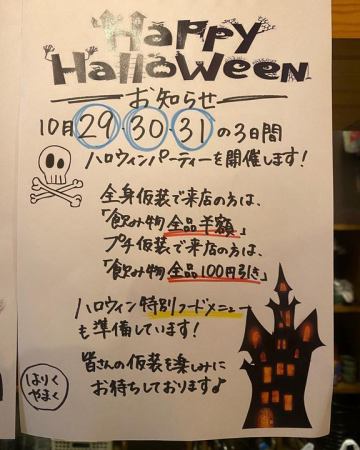 Happy
Halloween
お知らせ
10月29・30・31の3日間
ハロウィンパーティーを開催します!
全身仮装で来店の方は、
「飲み物全品半額」
プチ仮装で来店の方は、
「飲み物全品100円引き」
ハロウィン特別フードメニュー
も準備しています!
皆さんの仮装を楽しみに
お待ちしております♪
はりく
やまく